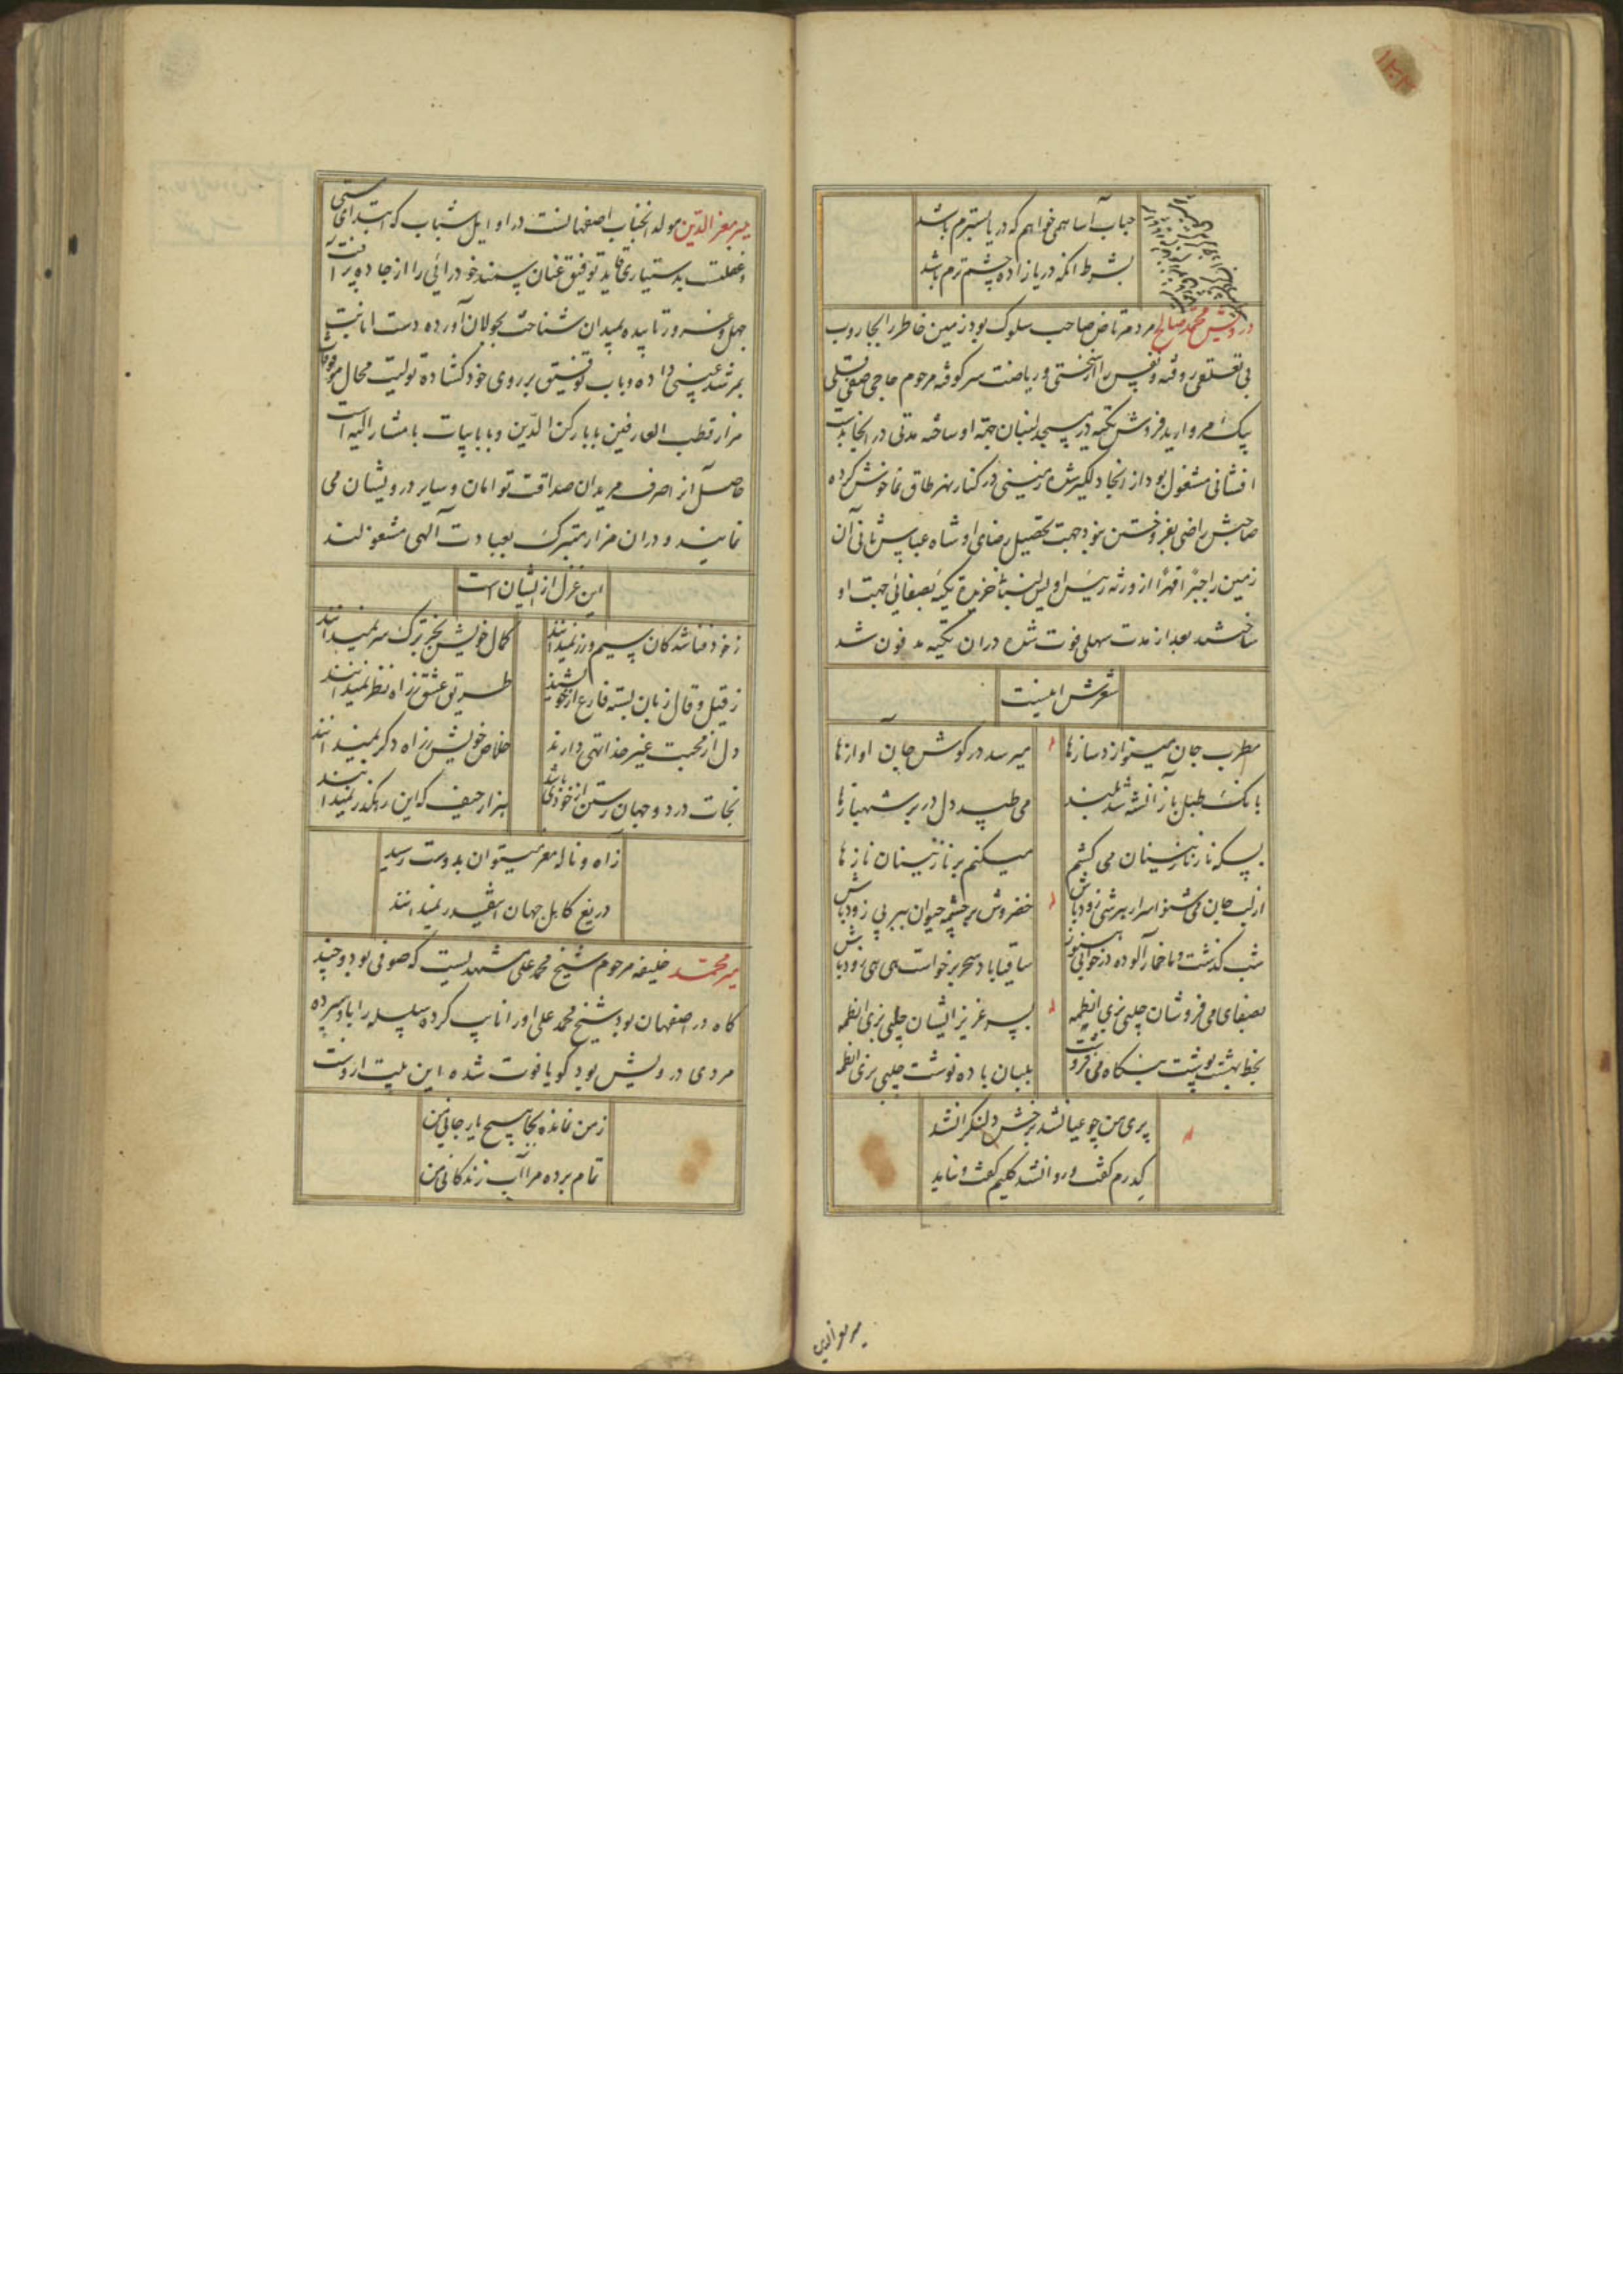 ۱۲۰۲
حباب آسا همی خواهم که دریا بسترم باشد
بشرط انکه دریا زاده چشم ترم باشد
درویش محمد صالح مرد مرتاض صاحب سلوک بود زمین خاطر را بجاروب
بی تعلقی روفته و نفس را از سختی و ریاضت سر کوفته مرحوم حاجی صفی قلی
بیک مروارید فروش تکیه در مسجد لنبان جهته او ساخته مدتی در انجا بدست
افشانی مشغول بود از انجا دلگیر شده زمینی در کنار نهر طاق نما خوش کرده
صاحبش راضی بفروختن نبود جهت تحصیل رضای او شاه عباس ثانی آن
زمین را جبرًا قهرًا از ورثه خریده تکیه بصفائی جهت او
ساختند بعد از مدت سهلی فوت شده دران تکیه مدفون شد
شعرش اینست
مطرب جان مینوازد سازها
میرسد در گوش جان آوازها
بانک طبل باز آنشه شد بلند
می طپد دل در بر شهبازها
بسکه ناز نازنینان می کشم
میکنم بر نازنینان نازها
از لب جان می شنو اسرار هر شی زود باش
خضروش بر چشمه حیوان ببر پی زود باش
شب گذشت و ما خمارآلوده در خوابی هنوز
ساقیا باد سحر برخواست هی هی زود باش
بصفای می فروشان چلبی بزی انظمه
بسر عزیز ایشان چلبی بزی انظمه
بخط بهشت پشت
بلبان باده نوشت چلبی بزی انظمه
پری من چو عیانشد برخش دلنگرانشد
کدرم گفت و روانشد کلیم گفت و نیامد
میر معز الدین
میر معز الدین مولد انجناب اصفهانست در اوایل شباب که ابتدای مستی
و غفلت بدستیاری قاید توفیق عنان سمند خودرائی را از جاده پر آفت
جهل و غرور تابیده بمیدان شناخت بجولان آورده دست انابت
بمرشد غیبی داده و باب توفیق بر روی خود گشاده تولیت محال موقوفات
مزار قطب العارفین بابا رکن الدین و بابا بیات با مشار الیه است
حاصل آنرا صرف مریدان صداقت توامان و سایر درویشان می
نمایند و دران مزار متبرک بعبادت آلهی مشغولند
این غزل از ایشان است
ز خود فنا شدکان سیم و زر نمیدانند
کمال خویش بجز ترک سر نمیدانند
ز قیل و قال زبان بسته فارغ از خویشند
طریق عشق ز راه نظر نمیدانند
دل از محبت غیر خدا تهی دارند
خلاص خویش ز راه دکر نمیدانند
نجات در دو جهان رستن از خودی باشد
هزار حیف که این رهگذر نمیدانند
ز آه و ناله معز میتوان بدوست رسید
دریغ کاهل جهان اینقدر نمیدانند
میر محمد خلیفه مرحوم شیخ محمد علی مشهدیست که صوفی بود و چند
گاه در اصفهان بود شیخ محمد علی او را نایب کرده سلسله را باو سپرده
مردی درویش بود گویا فوت شده این بیت ازوست
ز من نمانده بجا هیچ یار جانی من
تمام برده مرا آب زندگانی من